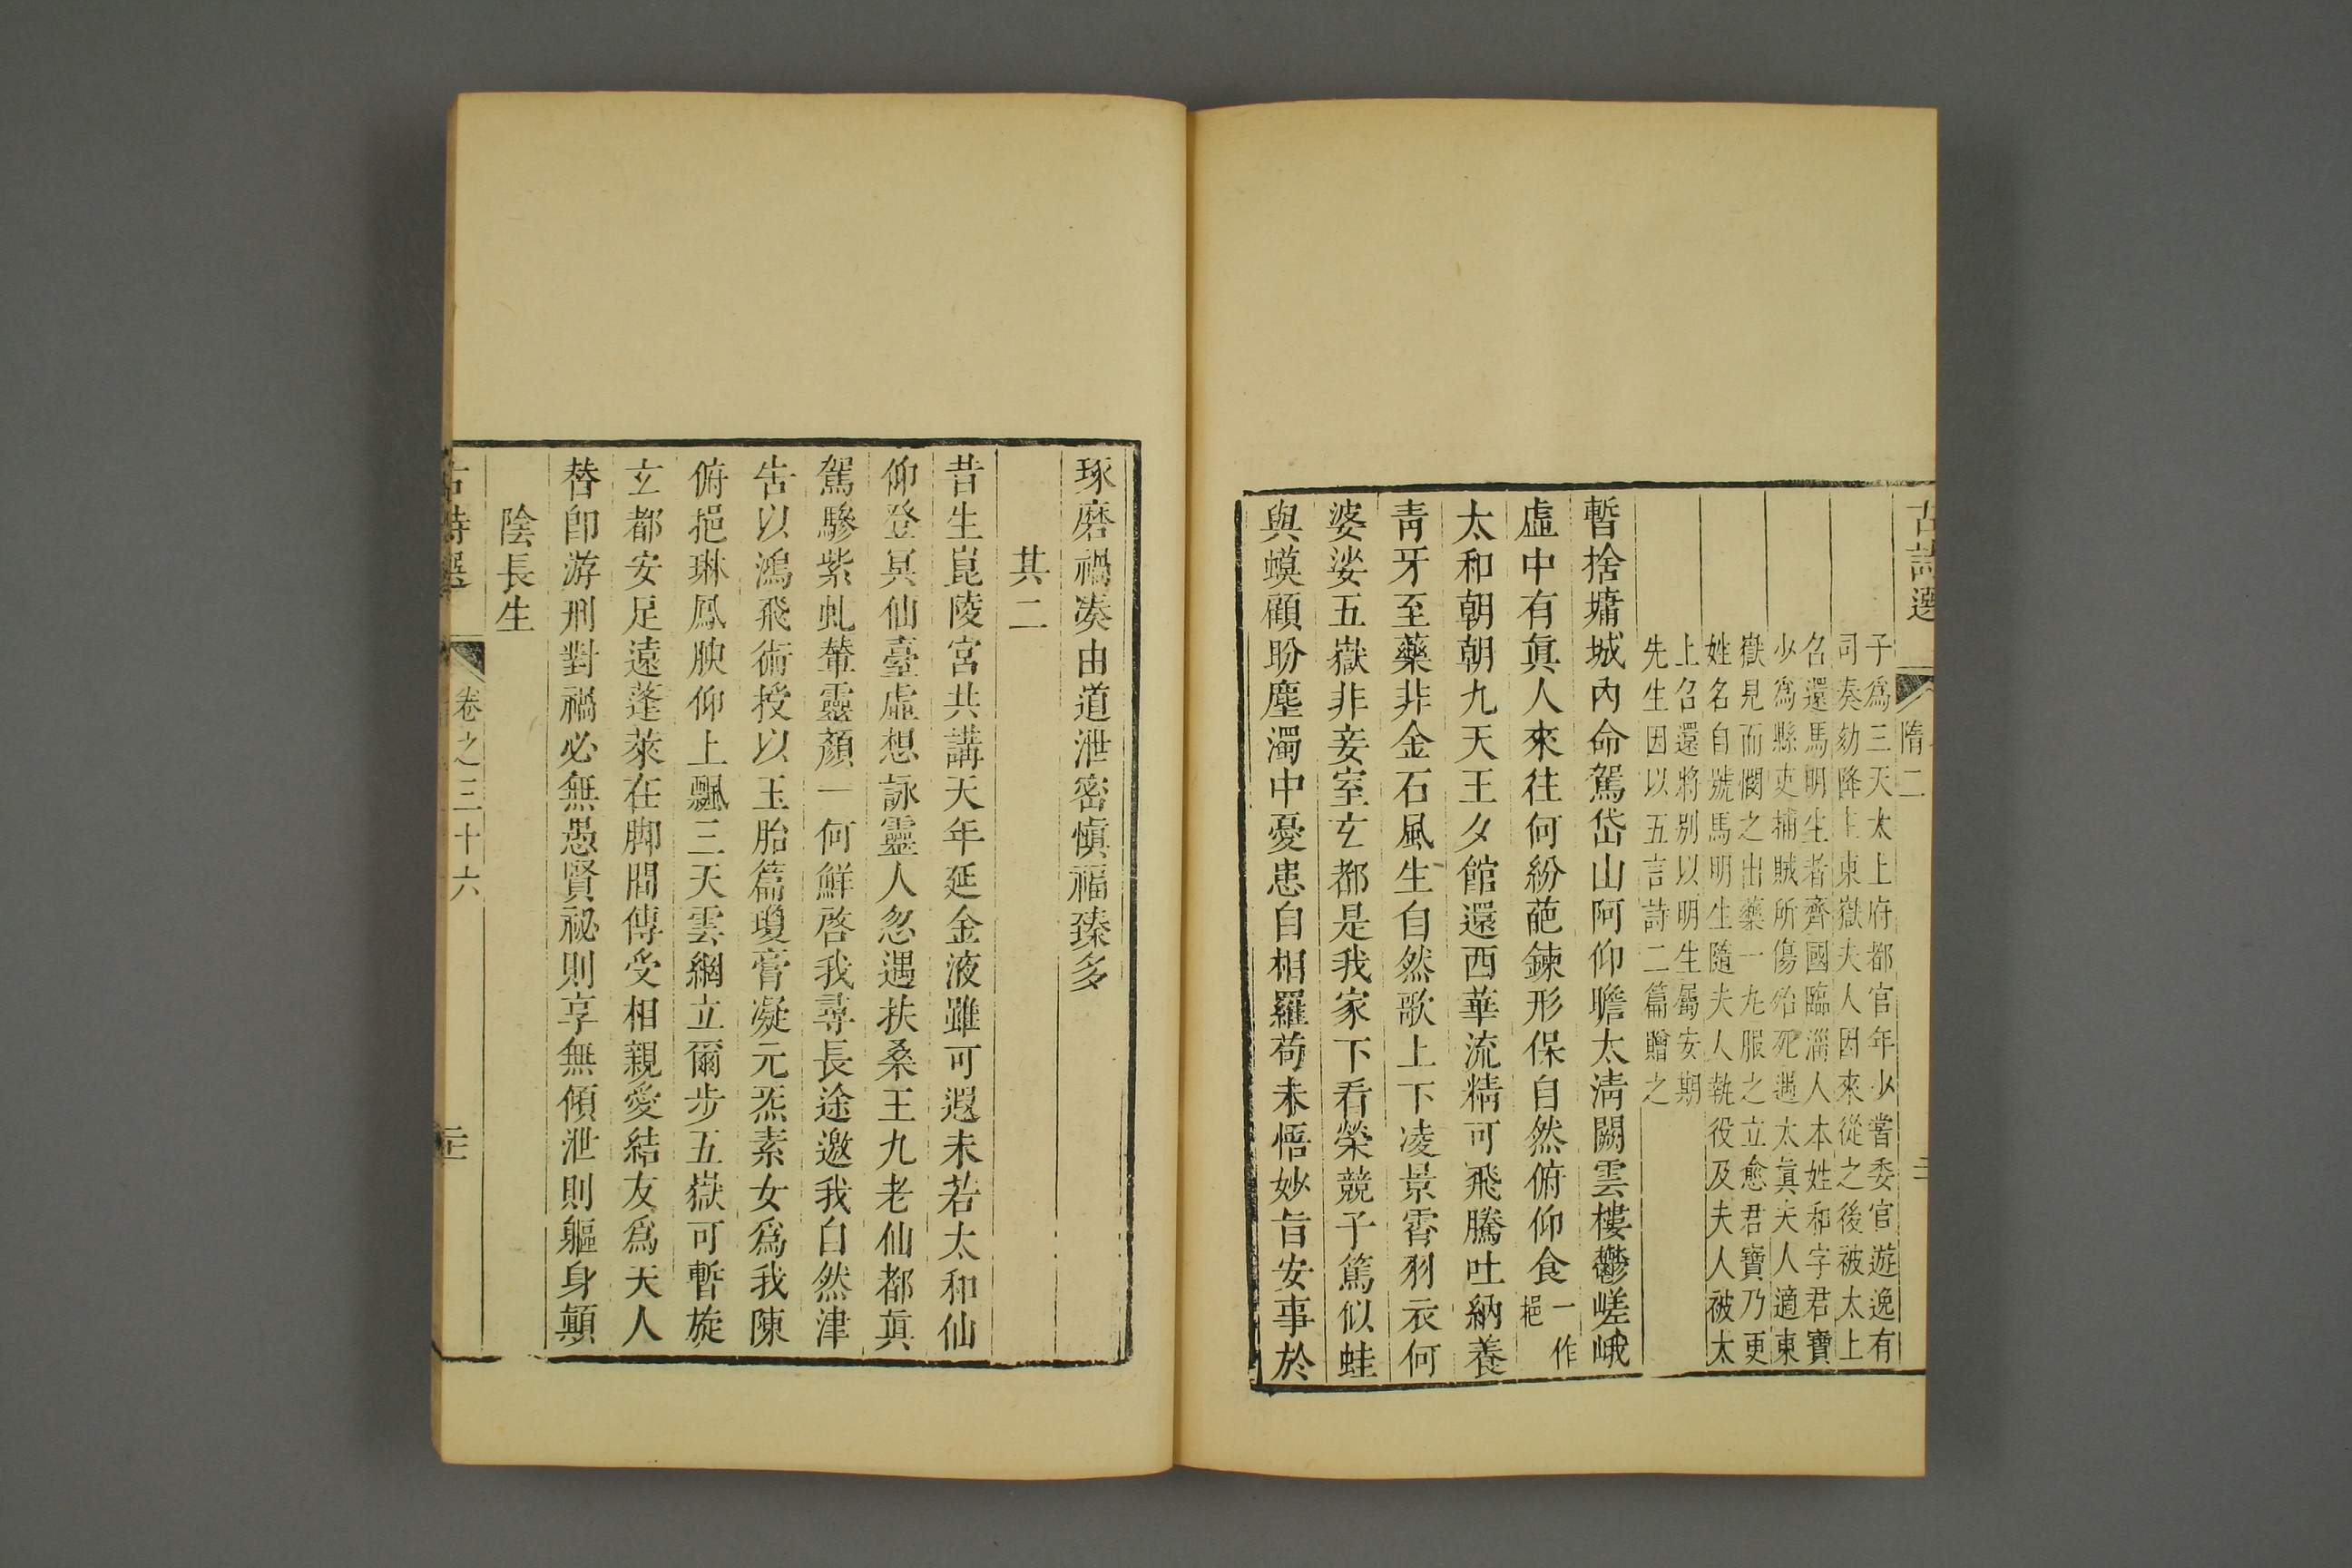 古詩選
隋二
子爲三天太上府都官年少嘗委官遊逸有
司奏劾降主東嶽夫人因來從之後被太上
召還馬明生者齊國臨淄人本姓和字君寶
少爲縣吏捕賊所傷殆死遇太眞夫人適東
嶽見而憫之出藥一丸服之立愈君寶乃更
姓名自號馬明生隨夫人執役及夫人被太
上召還將別以明生屬安期
先生因以五言詩二篇贈之
暫捨墉城內命駕岱山阿仰瞻太淸闕雲樓鬱嵯峨
虛中有眞人來往何紛葩鍊形保自然俯仰食一作挹
太和朝朝九天王夕館還西華流精可飛騰吐納養
靑牙至藥非金石風生自然歌上下凌景霄羽衣何
婆娑五嶽非妾室玄都是我家下看榮競子篤似蛙
與蟆顧盼塵濁中憂患自相羅苟未悟妙旨安事於
琢磨禍湊由道泄密愼福臻多
其二
昔生崑陵宮共講天年延金液雖可遐未若太和仙
仰登冥仙臺虛想詠靈人忽遇扶桑王九老仙都眞
駕驂紫虬輦靈顏一何鮮啓我尋長途邀我自然津
告以鴻飛術授以玉胎篇瓊膏凝元炁素女爲我陳
俯挹琳鳳腴仰上飄三天雲綱立爾步五嶽可暫旋
玄都安足遠蓬萊在脚間傳受相親愛結友爲天人
替卽游刑對禍必無愚賢祕則享無傾泄則軀身顚
陰長生
古詩選
卷之三十六